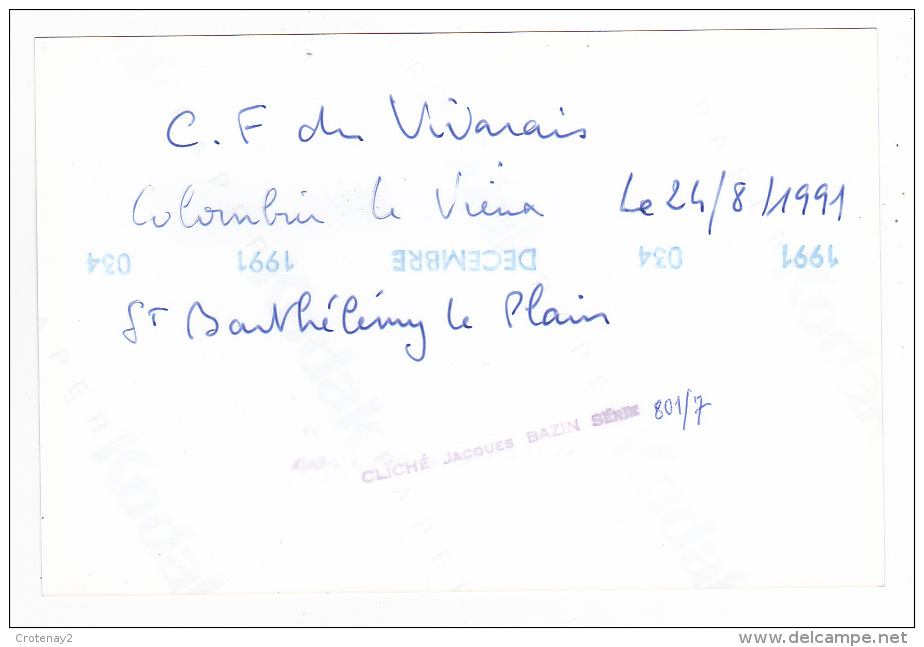 C.F du Vivarais
Colombier le Vieux Le 24/8/1991
1991 034 DECEMBRE 1991 034
ST Barthélémy le Plain
CLICHÉ JACQUES BAZIN SÉRIE 801/7
Kodak
Kodak
Kodak
Crotenay2
www.delcampe.net